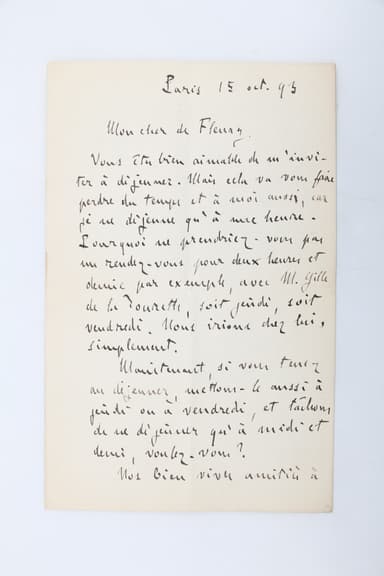 Paris 15 oct. 93
Mon cher de Fleury,
Vous êtes bien aimable de m'invi-
ter à déjeuner. Mais cela va vous faire
perdre du temps et à moi aussi, car
je ne déjeune qu'à une heure.
Pourquoi ne prendriez-vous pas
un rendez-vous pour deux heures et
demie par exemple, avec M. Gille
de la Tourette, soit jeudi, soit
vendredi. Nous irions chez lui,
simplement.
Maintenant, si vous tenez
au déjeuner, mettons-le aussi à
jeudi ou à vendredi, et tâchons
de ne déjeuner qu'à midi et
demi, voulez-vous?
Nos bien vives amitiés à